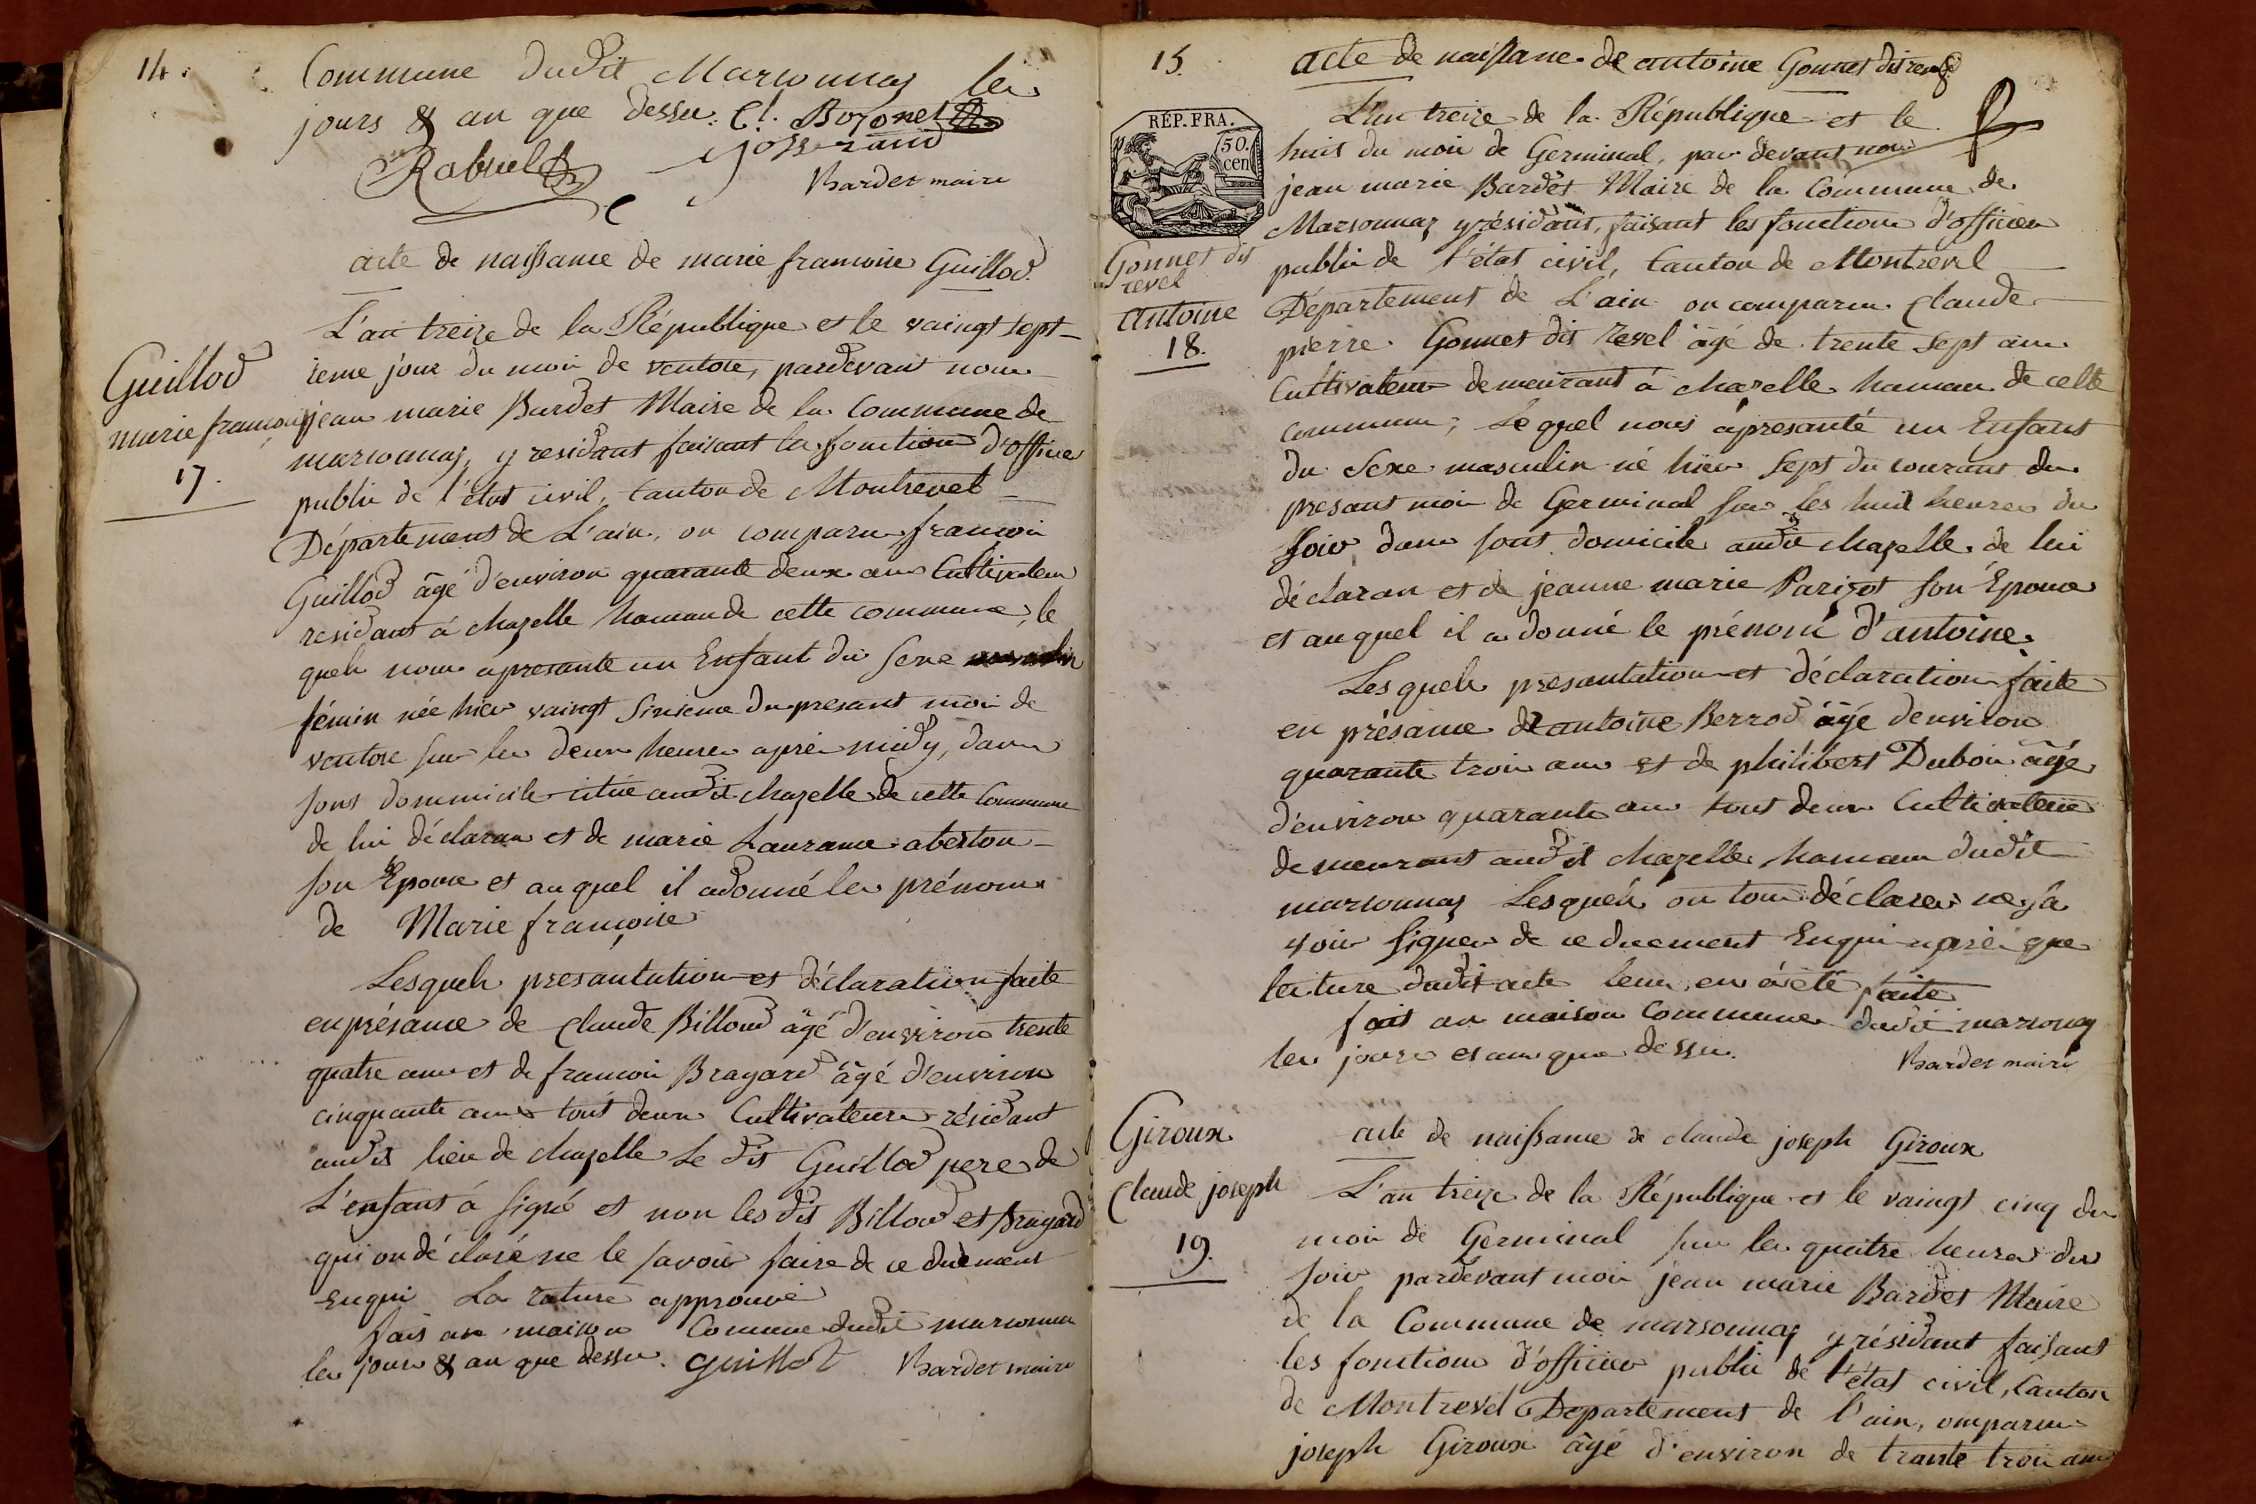 14.
Commune dudit Marsonnaz les
jours & an que dessu. Cl. Bozonet
Josserand
Rabuel
Bardet maire
acte de naissance de marie francoise Guillod
L'an treize de la République et le vaingt sept-
Guillod
marie françoise
17.
ieme jour du moi de ventose, pardevant nous
jean marie Bardet Maire de la Commune de
marsonnaz, y residant faisant les fonctions d'officier
public de l'état civil, canton de Montrevel
Département de L'ain, on comparu françois
Guillod âgé d'environ quarante deux ans Cultivateur
residant á chazelle hamau de cette commune, le
quels nous apresante un Enfant du sexe
féminin née hier vaingt sixieme du presant moi de
ventose sur les deux heures aprèi midy, dans
sont dommicile citue audit chazelle de cette Commune
de lui déclaran et de marie Laurance aberton
son Epouse et au quel il adonné les prénoms
de Marie françoise
Lesquels presantation et déclaration faite
en présance de Claude Billoud âgé d'environ trente
quatre ans et de francoi Bragard âgé d'environ
cinquante ans tout deux Cultivateurs résidant
audit lieu de chazelle Le dit Guillod pere de
L'enfant á signé et non les dit Billoud et Bragard
qui on déclaré ne le savoir faire de ce duement
Enqui La rature approuvé
fait an maison Commune dudit marsonnaz
les jours & an que dessu. guillot Bardet maire
15.
acte de naissance de antoine Gonnet dit revel
RÉP. FRA.
50.
cen
L'an treize de la République et le
huit du moi de Germinal, par devant nous
jean marie Bardet Maire de la Commune de
Marsonnaz y résidant, faisant les fonctions d'officier
Gonnet dit
revel
antoine
18.
public de l'état civil, Canton de Montrevel
Département de L'ain on comparu Claude
pierre Gonnet dit revel âgé de trente sept ans
Cultivateur demeurant á chazelle hamau de cette
commune; Lequel nous apresanté un Enfant
du Sexe masculin né hier sept du courant du
presant moi de Germinal sur les huit heures du
soir dans sont domicile audit chazelle de lui
déclaran et de jeanne marie Parizot son Epouse
et auquel il a donné le prénom d'antoine.
Lesquels presantation et déclaration faite
en présance de antoine Berrod âgé d'environ
quarante troi ans et de philibert Duboi âgé
d'environ quarante ans tout deux Cultivateurs
demeurant audit chazelle hamau dudit
marsonnaz Lesquels on tous déclarer ne sa
voir signer de ce duement Enqui aprèi que
lecture dudit acte leur en a été faite
fait an maison Commune dudit marsonaz
les jours et an que dessu.
Bardet maire
Giroux
Claude joseph
19.
acte de naissance de claude joseph Giroux
L'an treize de la République et le vaingt cinq du
moi de Germinal sur les quatre heures du
soir pardevant moi jean marie Bardet Maire
de la Commune de marsonnaz y résidant faisant
les fonctions d'officier public de l'état civil, Canton
de Montrevel Département de l'ain, omparu
joseph Giroux âgé d'environ de trante troi ans